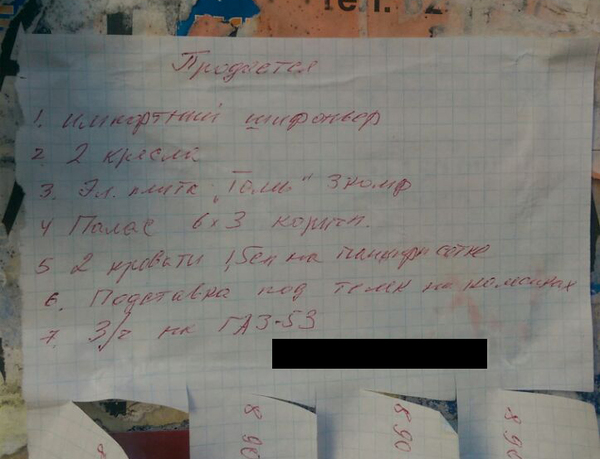 тел. 82
Продается
1. Импортный шифоньер
2 2 кресла
3. Эл. плитка "Томь" 3 комф
4 Палас 6х3 коричн.
5 2 кровати 1,5сп на панцирн сетке
6. Подставка под телек на колесиках
7. З/ч на ГАЗ-53
8 90
8 90
8 90